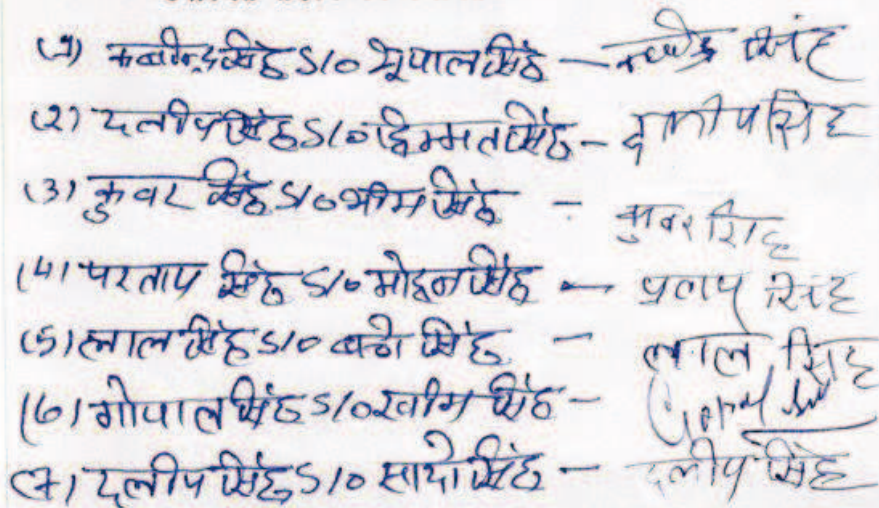 (1) कवीन्द्र सिंह S/o भूपाल सिंह – सिंह
(2) दलीप सिंह S/o हिम्मत सिंह – दलीप सिंह
(3) कुवर सिंह S/o भीम सिंह – कुवर सिंह
(4) परताप सिंह S/o मोहन सिंह – प्रताप सिंह
(5) लाल सिंह S/o बची सिंह – लाल सिंह
(6) गोपाल सिंह S/o खीम सिंह –
(7) दलीप सिंह S/o सादो सिंह – दलीप सिंह